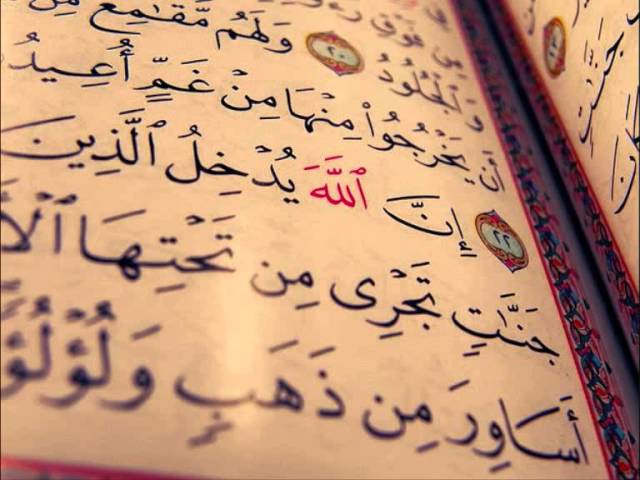 مِن فَوْقِ
وَٱلْجُلُودُ ٢٠ وَلَهُم مَّقَٰمِعُ مِنْ
أَن يَخْرُجُوا۟ مِنْهَا مِنْ غَمٍّ أُعِيدُ
٢٢ إِنَّ ٱللَّهَ يُدْخِلُ ٱلَّذِينَ
جَنَّٰتٍ تَجْرِى مِن تَحْتِهَا ٱلْأَ
أَسَاوِرَ مِن ذَهَبٍ وَلُؤْلُؤً
جَنَّٰتٍ